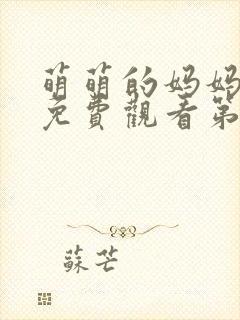 萌萌的妈妈
免費觀看第
蘇芒